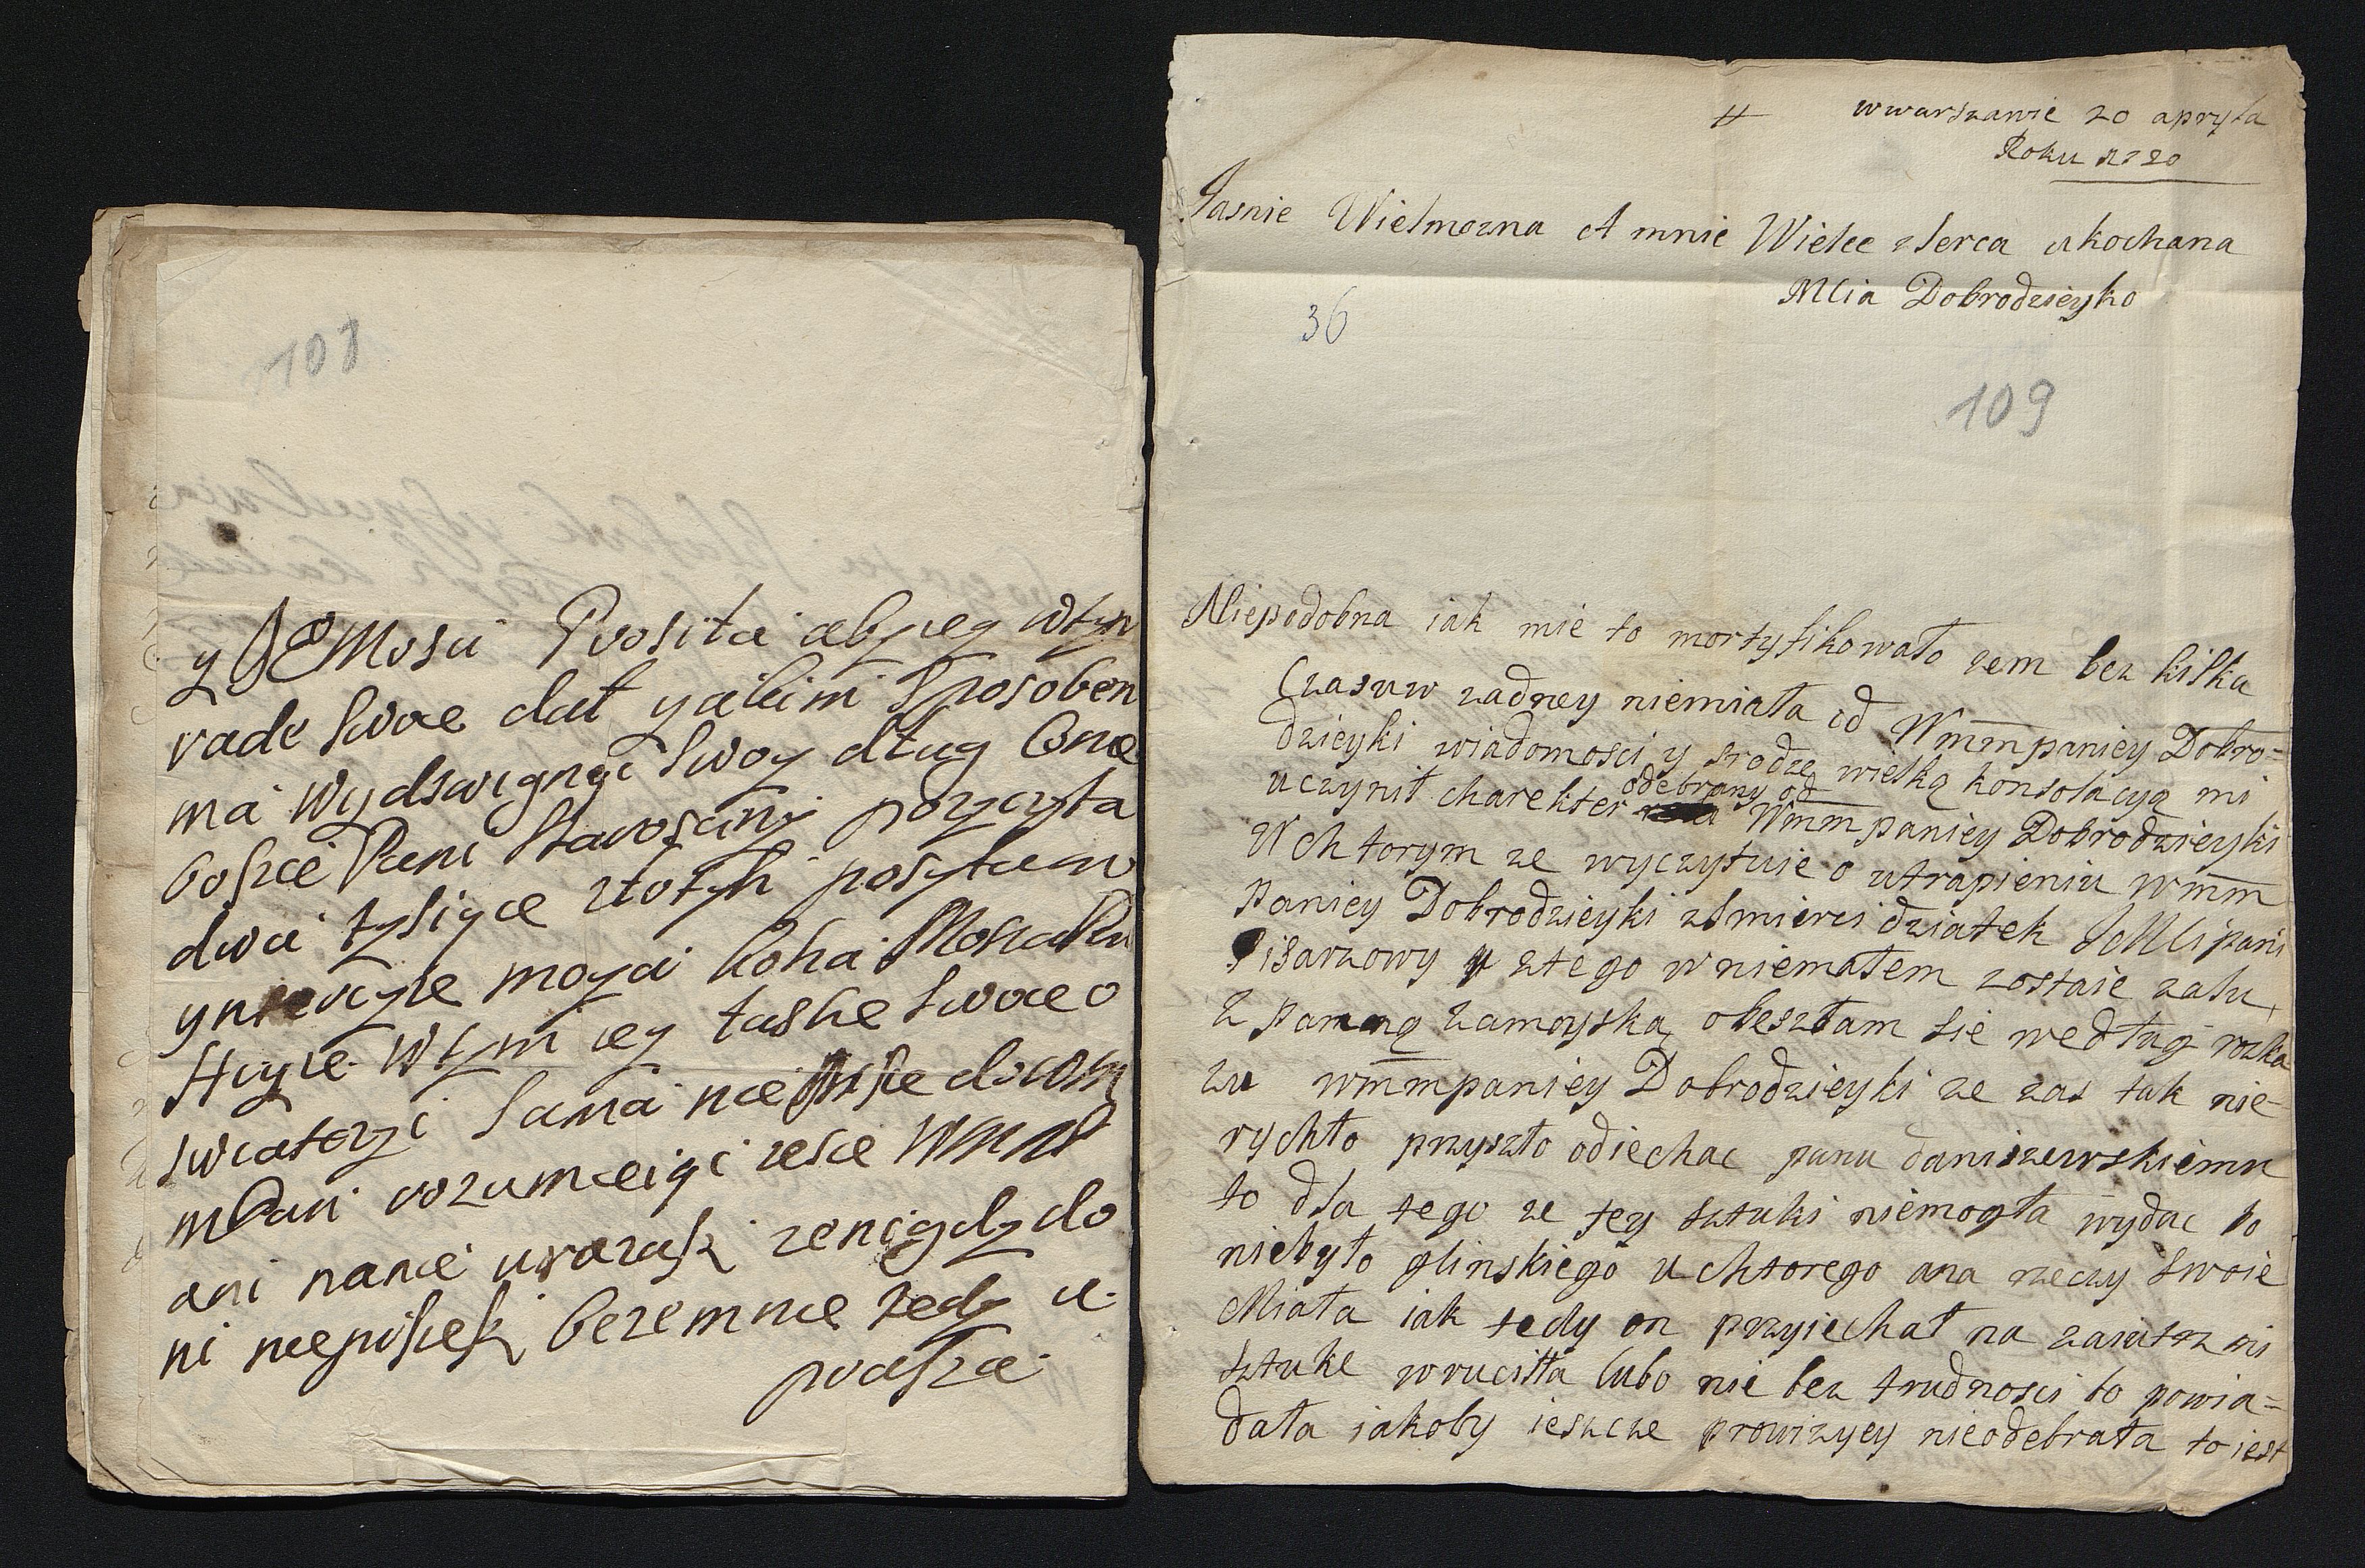 108
y JEMosci Prosiła abyiey wtym
rade swoe dał yakim sposobem
ma wydswignąć swoy dług
boszie Pani Starosciny pozyczyła
dwa tysiące złotyh posyłam
moya koha
wtym iey łaske swoe o
swiatczyi sama nie
mPani rozumieiąc zesie WMM
ani nanie urazasz zenigdy do
ni niepiszesz bezemnie tedy u
prasza
# wwarszawie 20 apryla
Roku 1720
Jasnie Wielmozna A mnie Wielce zserca ukochana
MCia Dobrodzieyko
36
109
Niepodobna iak mie to mortyfikowało zem bez kilka
Czasuw zadney niemiała od Wmmpaniey Dobro=
dzieyki wiadomosci y srodze wielką konsolacyą mi
uczynił charekter odebrany od Wmmpaniey Dobrodzieyki
Wchtorym ze wyczytuie o utrapieniu wmm
paniey Dobrodzieyki zsmierci dziatek JeMCi pani
Pisarzowy y ztego wniemałem zostaie zalu,
z panną zamoyską obeszłam sie według rozka
zu wmmpaniey Dobrodzieyki ze zas tak nie-
rychło przyszło odiechac panu daniszewskiemu
to dla tego ze tey sztuki niemogła wydac bo
niebyło glinskiego uchtorego ona rzeczy swoie
Miała iak tedy on przyiechał na zaiutrz mi
sztuke wruciła lubo nie bez trudnosci bo powia=
dała iakoby ieszcze prowizyey nieodebrała to iest